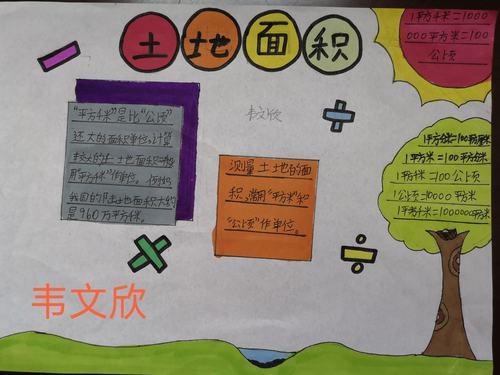 土地面积
1平方千米=1000
000平方米=100
公顷
"平方千米"是比"公顷"
还大的面积单位,计算
用"平方千米"作单位。
我国的陆土地面积大约
是960万平方千米。
韦文欣
测量土地的面
积,常用"平方米"和
"公顷"作单位。
1平方米=100平方分米
1平方千米=100公顷
1公顷=10000平方米
1平方千米=1000000平方米
韦文欣